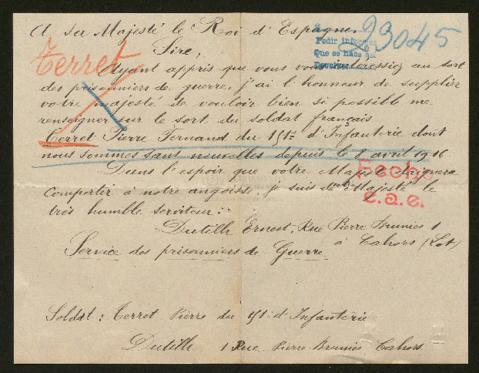 A sa Majesté le Roi d'Espagne,
Pedir informes
Que se hace
23045
Sire,
Terret
Ayant appris que vous vous intéressiez au sort
des prisonniers de guerre, j'ai l'honneur de supplier
votre majesté de vouloir bien si possible me
renseigner sur le sort du soldat français
Terret Pierre Fernand du d'Infanterie dont
nous sommes sans nouvelles depuis le avril 1916
Dans l'espoir que votre Majesté daignera
Hecho
compatir à notre angoisse, je suis de Majesté le
e.a.e.
très humble serviteur :
Dutilh Ernest, Rue Pierre Brunies 1
à Cahors (Lot)
Service des prisonniers de Guerre
Soldat : Terret Pierre du d'Infanterie
Dutilh 1 Rue Pierre Brunies Cahors